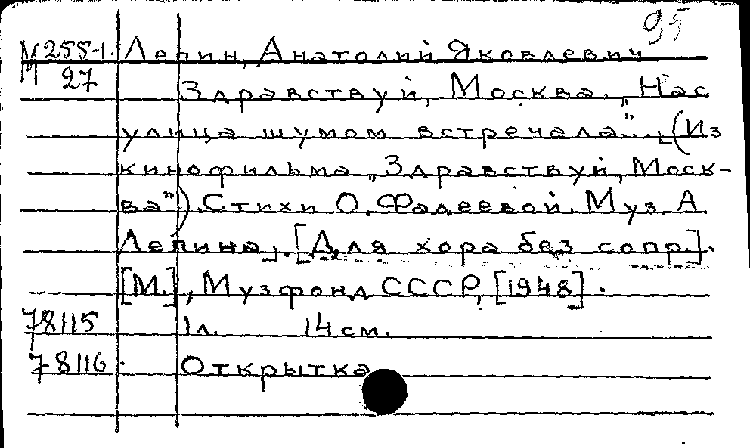 95
М 255-1 Лепин, Анатолий Яковлевич
М 27 Здравствуй, Москва. „Нас
улица шумом встречала". (Из
кинофильма „Здравствуй, Моск-
ва"). Стихи О. Фадеевой. Муз. А.
Лепина. [Для хора без сопр.].
[М.], Музфонд СССР, [1948].
78115 1 л. 14 см.
78116 Открытка